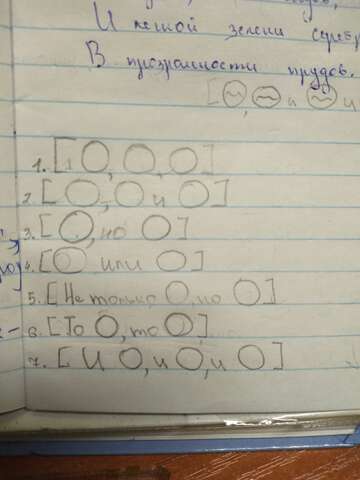 И
зелени
В прозрачности прудов.
[○, ○ и ○ и
1. [○, ○, ○]
2. [○, ○ и ○]
3. [○, но ○]
4. [○ или ○]
5. [Не только ○, но ○]
6. [То ○, то ○].
7. [И ○, и ○, и ○]